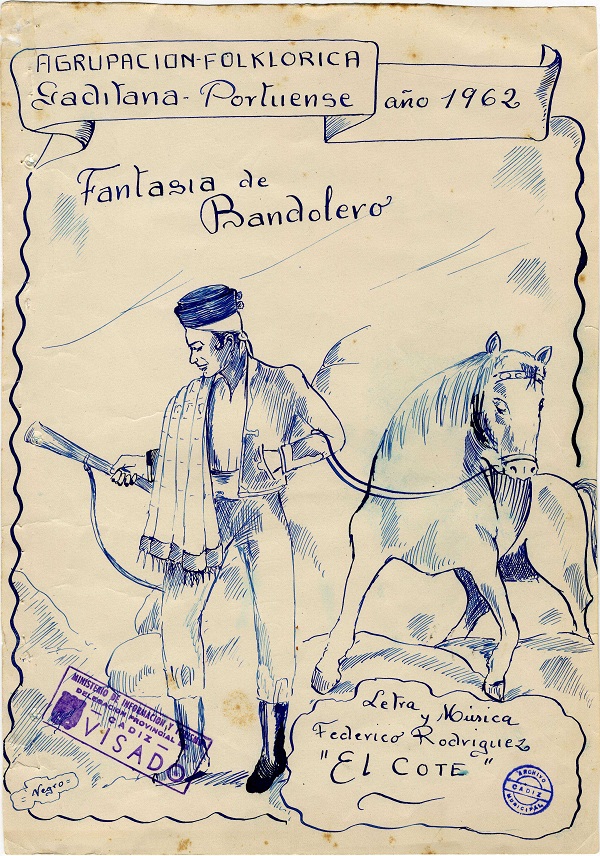 AGRUPACION-FOLKLORICA
Gaditana-Portuense año 1962
Fantasia de
Bandolero
MINISTERIO DE INFORMACION Y
DELEGACION PROVINCIAL
CADIZ
VISADO
Negro
Letra
y Música
Federico Rodriguez
"EL COTE"
ARCHIVO
CADIZ
MUNICIPAL